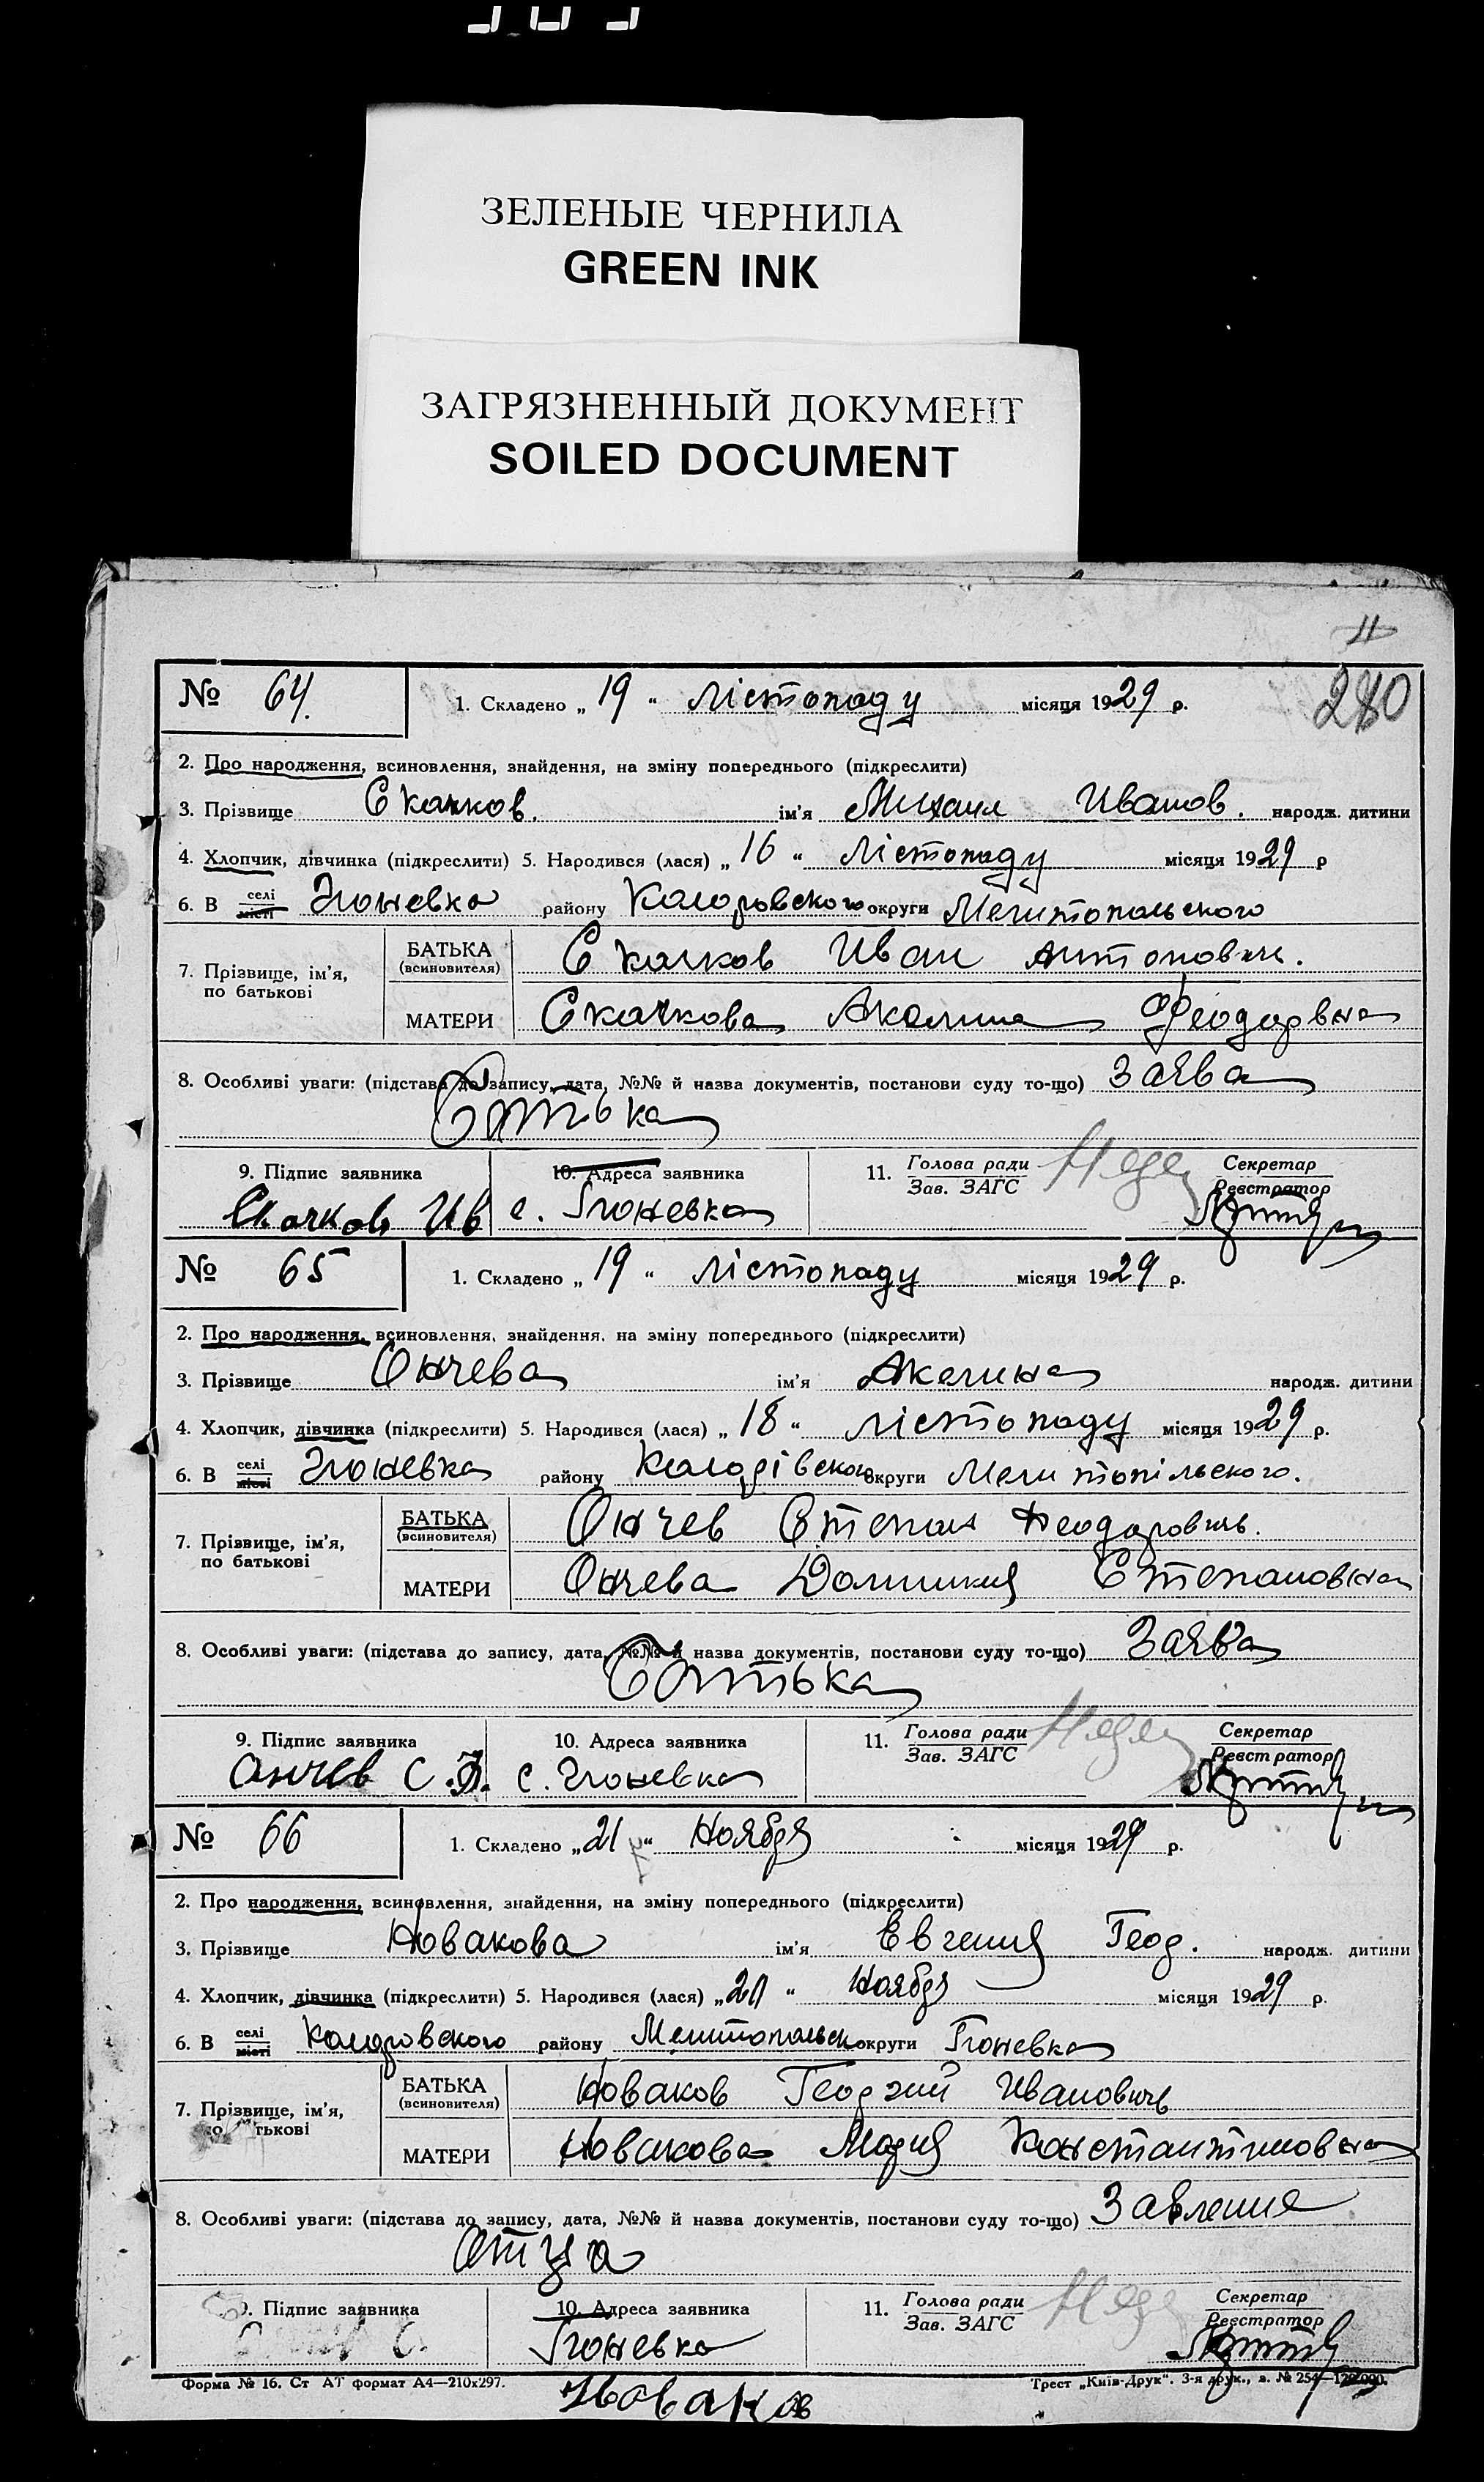 ЗЕЛЕНЫЕ ЧЕРНИЛА
GREEN INK
ЗАГРЯЗНЕННЫЙ ДОКУМЕНТ
SOILED DOCUMENT
11
280
№ 64. 1. Складено „ 19 “ лістопаду місяця 1929 р.
2. Про народження, всиновлення, знайдення, на зміну попереднього (підкреслити)
3. Прізвище Скачков. ім’я Михаил Иванов. народж. дитини
4. Хлопчик, дівчинка (підкреслити) 5. Народився (лася) „ 16 “ Лістопаду місяця 1929 р
6. В селі місті Гюневка району Коларовского округи Мелитопольского
7. Прізвище, ім’я, по батькові
БАТЬКА (всиновителя) Скачков Иван Антонович.
МАТЕРИ Скачкова Акалина Феодорвна
8. Особливі уваги: (підстава до запису, дата, №№ й назва документів, постанови суду то-що) Заява
Батька
9. Підпис заявника 10. Адреса заявника 11. Голова ради Зав. ЗАГС Секретар Реєстратор
Скачков Ив с. Гюневка
№ 65 1. Складено „ 19 “ лістопаду місяця 1929 р.
2. Про народження, всиновлення, знайдення, на зміну попереднього (підкреслити)
3. Прізвище Ончева ім’я Акелина народж. дитини
4. Хлопчик, дівчинка (підкреслити) 5. Народився (лася) „ 18 “ лістопаду місяця 1929 р.
6. В селі місті Гюневка району Коларівского округи Мелитопільского.
7. Прізвище, ім’я, по батькові
БАТЬКА (всиновителя) Ончев Степан Феодорович.
МАТЕРИ Ончева Домникия Степановна
8. Особливі уваги: (підстава до запису, дата, №№ й назва документів, постанови суду то-що) Заява
Батька
9. Підпис заявника 10. Адреса заявника 11. Голова ради Зав. ЗАГС Секретар Реєстратор
Ончев С. Ф. с. Гюневка
№ 66 1. Складено „ 21 “ Ноября місяця 1929 р.
2. Про народження, всиновлення, знайдення, на зміну попереднього (підкреслити)
3. Прізвище Новакова ім’я Евгения Геор. народж. дитини
4. Хлопчик, дівчинка (підкреслити) 5. Народився (лася) „ 20 “ Ноября місяця 1929 р.
6. В селі місті Коларовского району Мелитопольск округи Гюневка
7. Прізвище, ім’я, по батькові
БАТЬКА (всиновителя) Новаков Георгий Иванович
МАТЕРИ Новакова Мария Константиновна
8. Особливі уваги: (підстава до запису, дата, №№ й назва документів, постанови суду то-що) Завление
Отца
9. Підпис заявника 10. Адреса заявника 11. Голова ради Зав. ЗАГС Секретар Реєстратор
Гюневка
Форма № 16. Ст АТ формат А4—210х297. Трест „Київ-Друк“. 3-я друк., з. № 254
Новаков